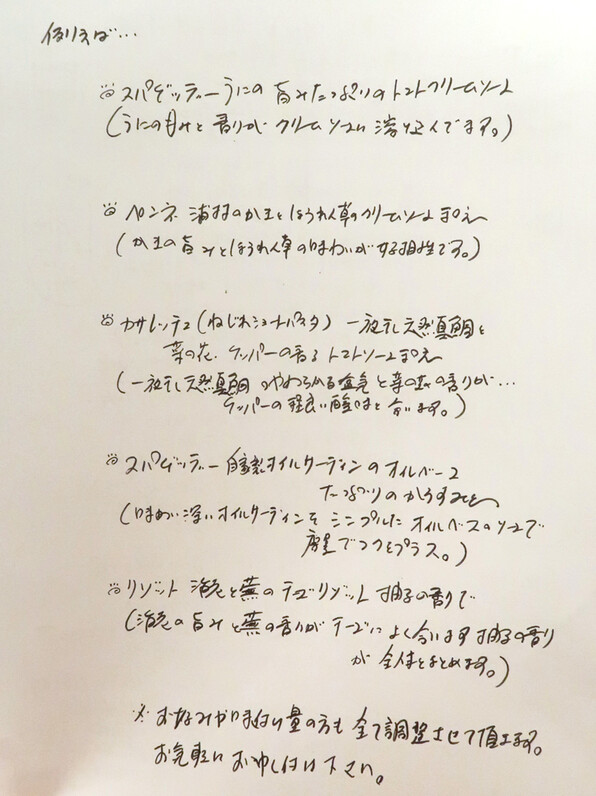 例えば…
スパゲッティーうにの旨みたっぷりのトマトクリームソース
(うにの甘みと香りがクリームソースに溶け込んでます。)
ペンネ 浦村のかきとほうれん草のクリームソース和え
(かきの旨みとほうれん草の味わいが好相性です。)
カサレッチェ(ねじれショートパスタ) 一夜干し天然真鯛と
菜の花、ケッパーの香るトマトソース和え
(一夜干し天然真鯛のやわらかな塩気と菜の花の香りが…
ケッパーの程良い酸味と合います。)
スパゲッティー 自家製オイルサーディンのオイルベース
たっぷりのからすみと
(味わい深いオイルサーディンをシンプルにオイルベースのソースで
唐墨でコクをプラス。)
リゾット と蕪のチーズリゾット 柚子の香りで
(の旨みと蕪の香りがチーズによく合います 柚子の香り
が全体をまとめます。)
※おなみや味付け量の方も全て調整させて頂きます。
お気軽にお申し付け下さい。